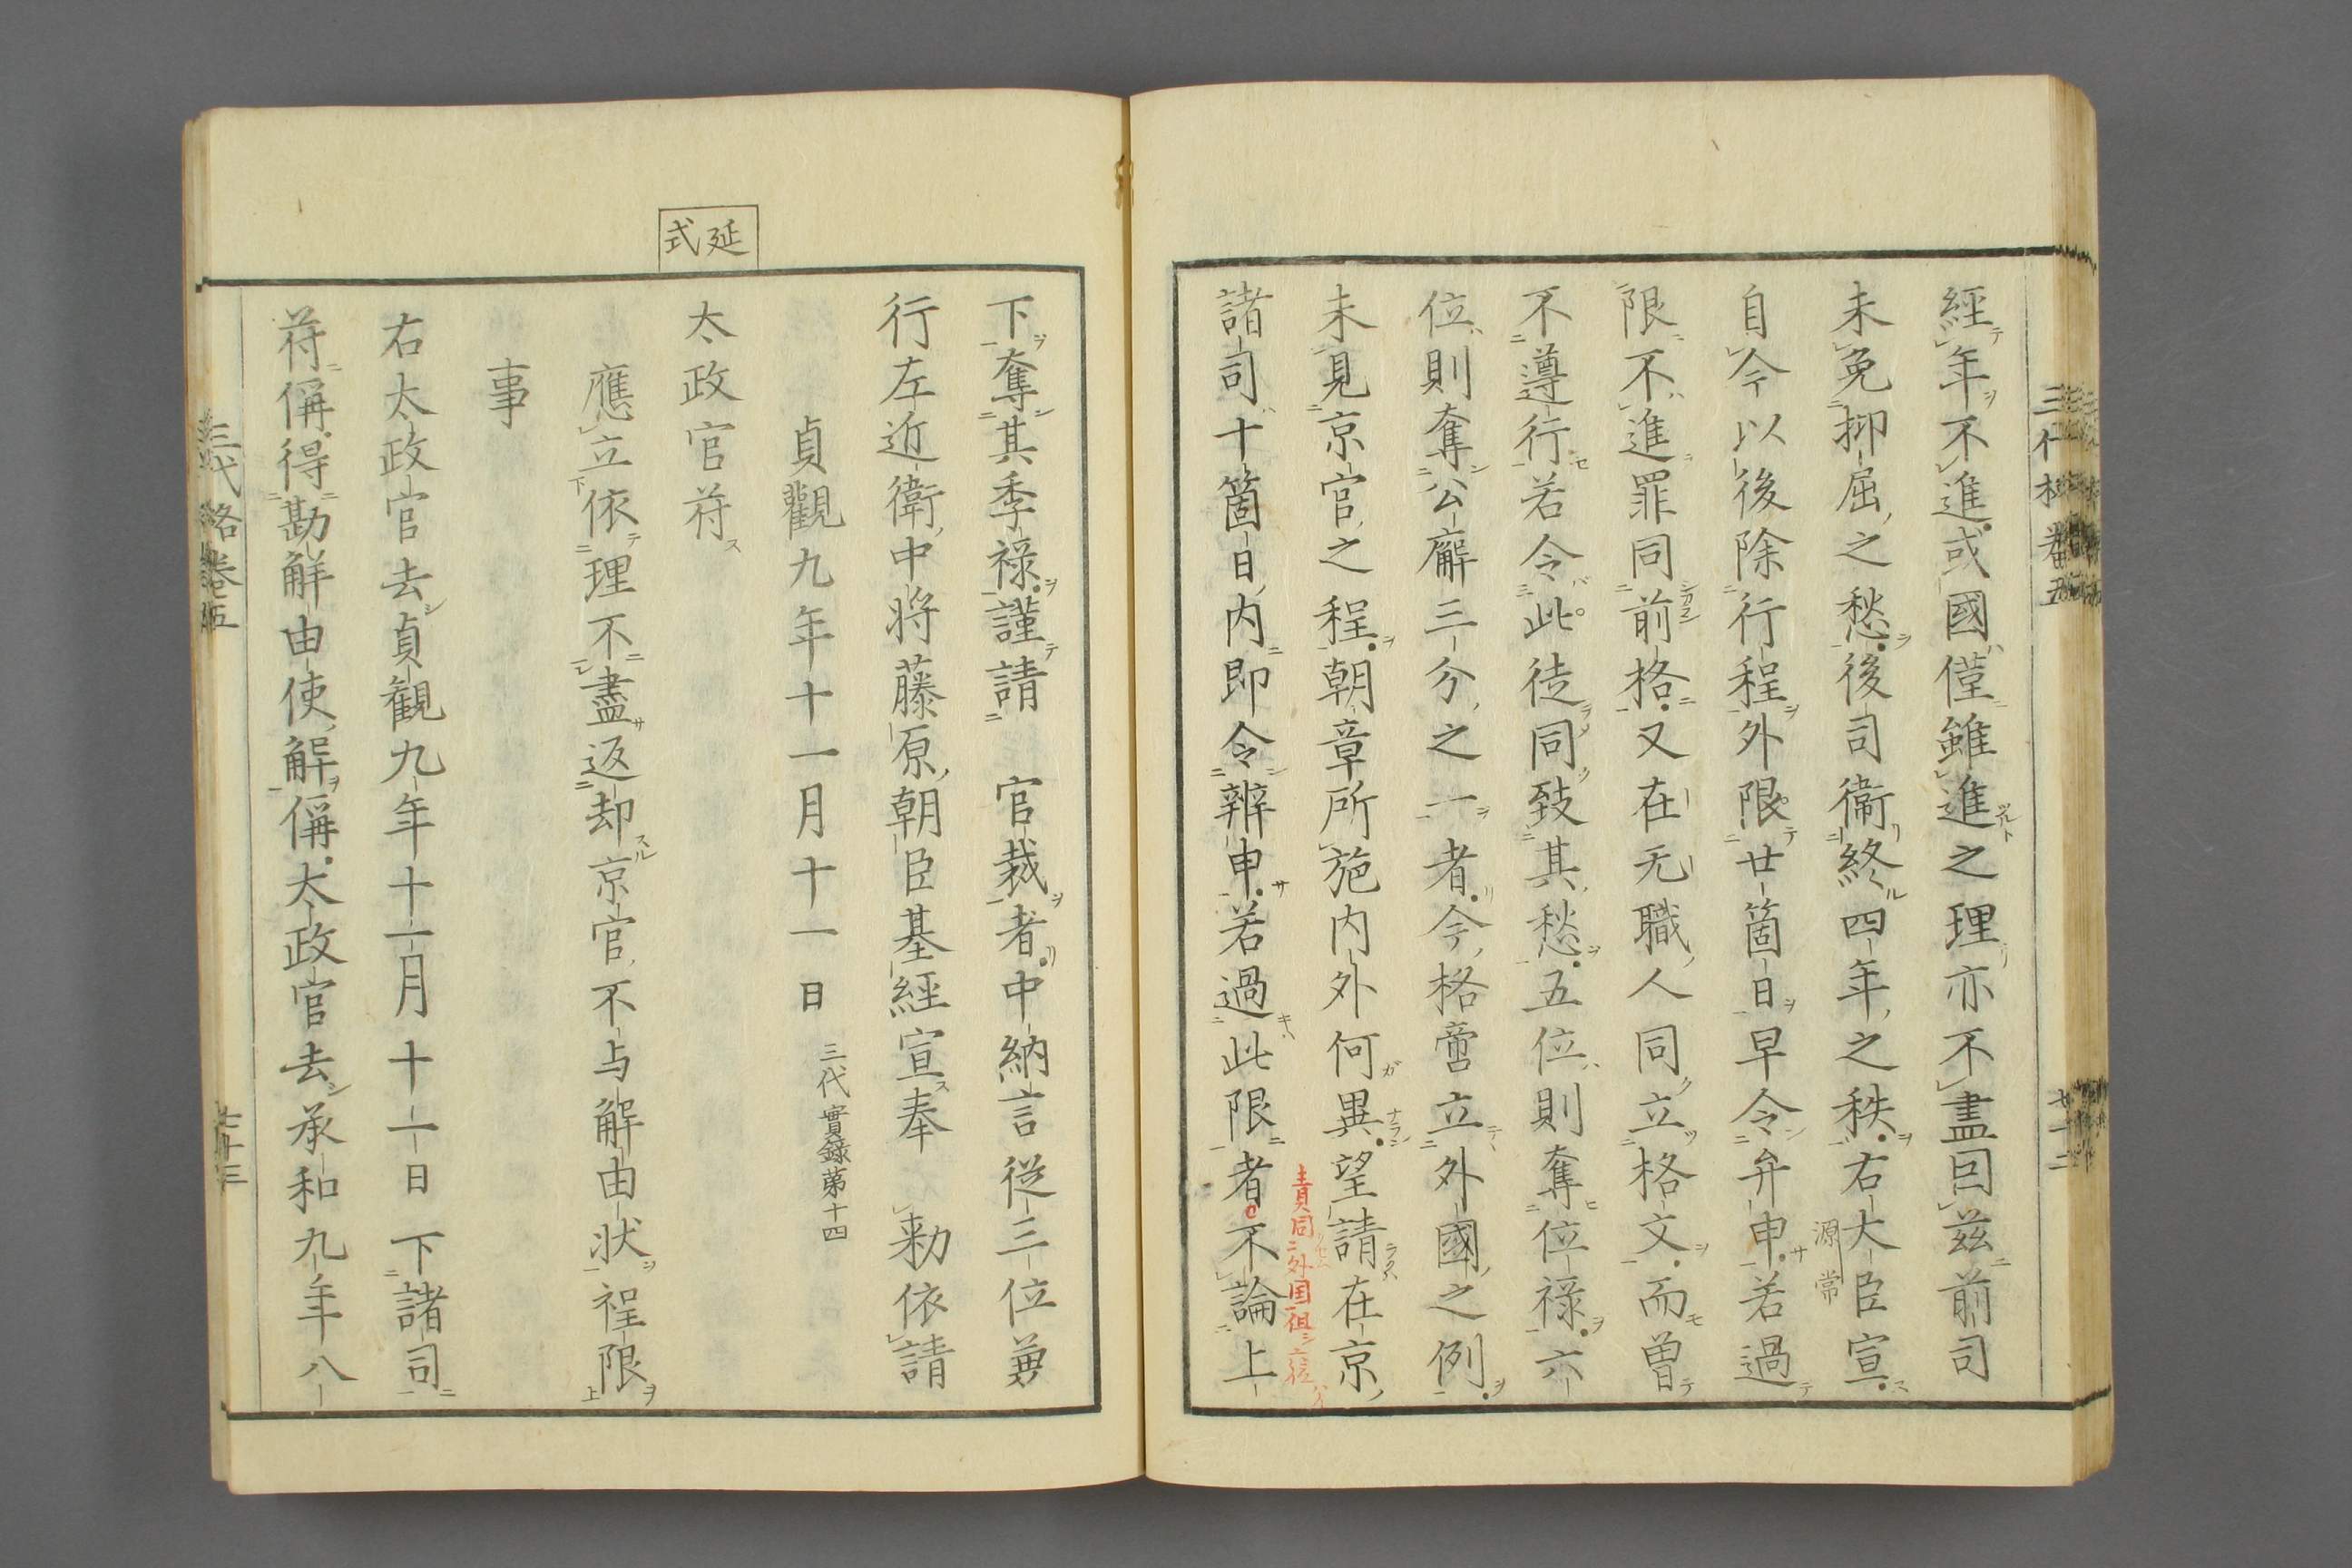 經年不進或國僅雖進之理亦不盡因茲前司
未免抑屈之愁後司衞終四年之秩右大臣宣
源常
自今以後除行程外限廿箇日早令弁申若過
限不進罪同前格又在无職人同立格文而曽
不遵行若令此徒同致其愁五位則奪位祿六
位則奪公廨三分之一者今格啻立外國之例
未見京官之程朝章所施内外何異望請在京
諸司十箇日内即令辨申若過此限者不論上
三代格卷五
七十二
延式
下奪其季祿謹請　官裁者中納言從三位兼
行左近衛中將藤原朝臣基經宣奉　勅依請
貞觀九年十一月十一日
三代實録第十四
太政官符
應立依理不盡返却京官不与解由狀程限
事
右太政官去貞觀九年十一月十一日下諸司
符偁得勘解由使解偁太政官去承和九年八
三代格卷五
七十三